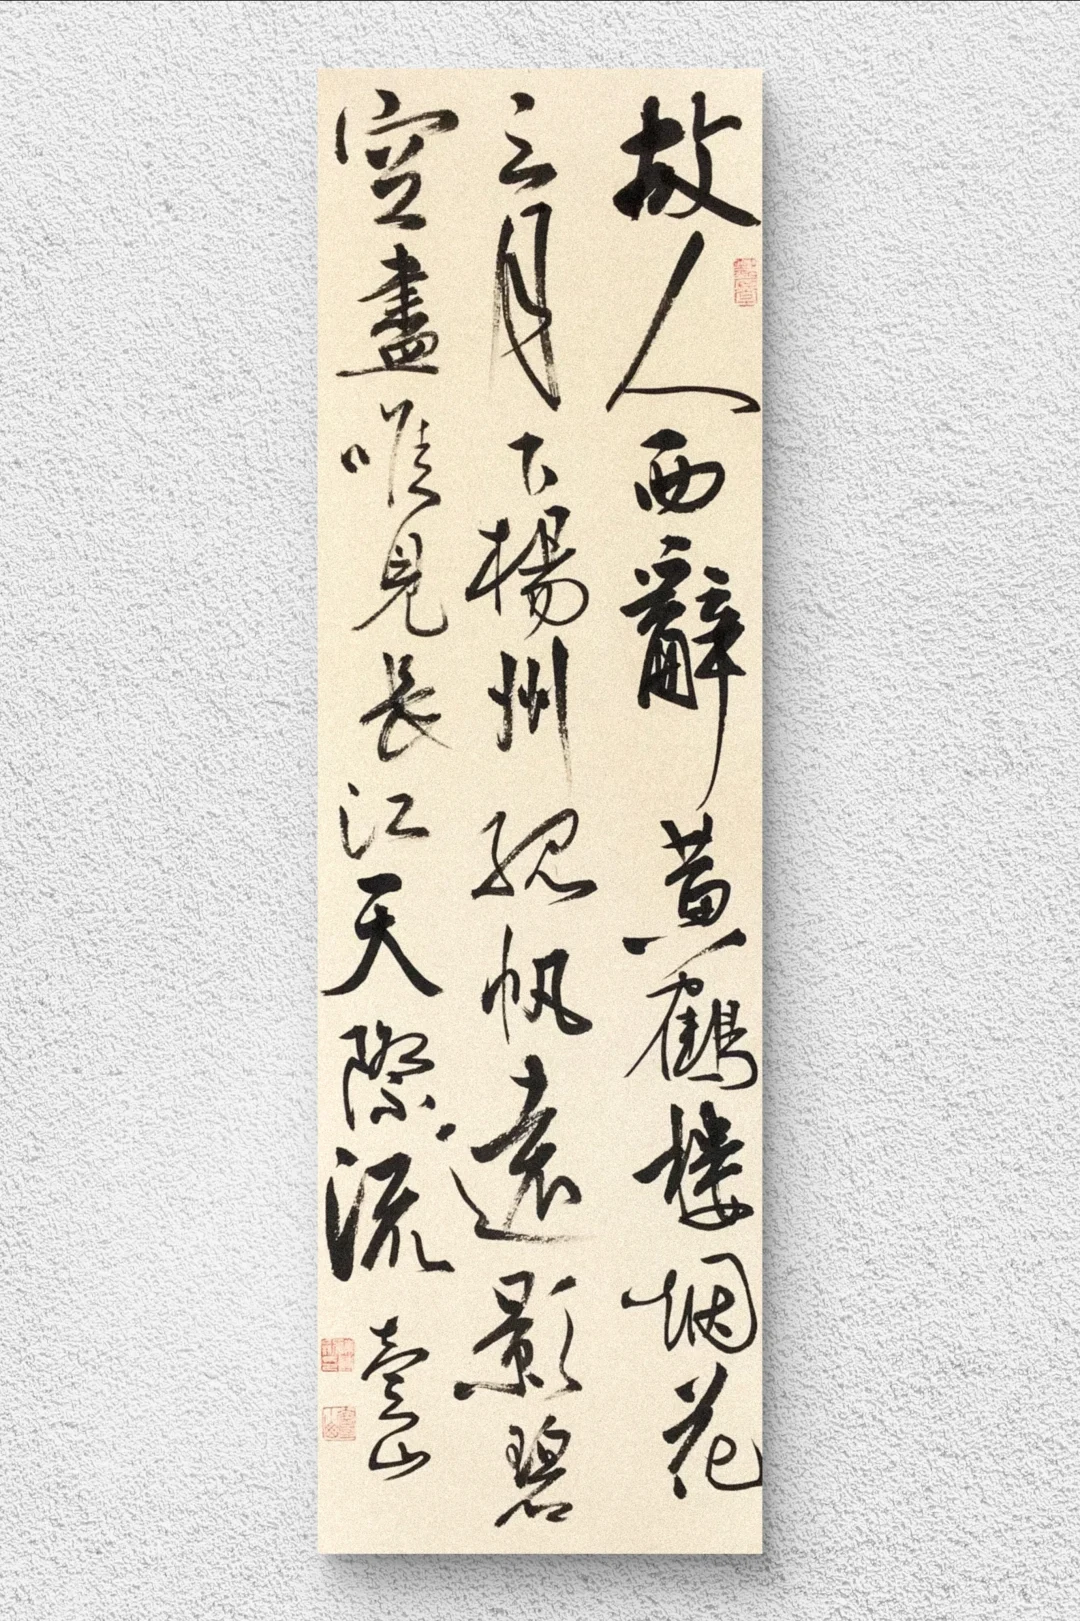 故人西辭黃鶴樓烟花
三月下楊州孤帆遠影碧
空盡唯見長江天際流